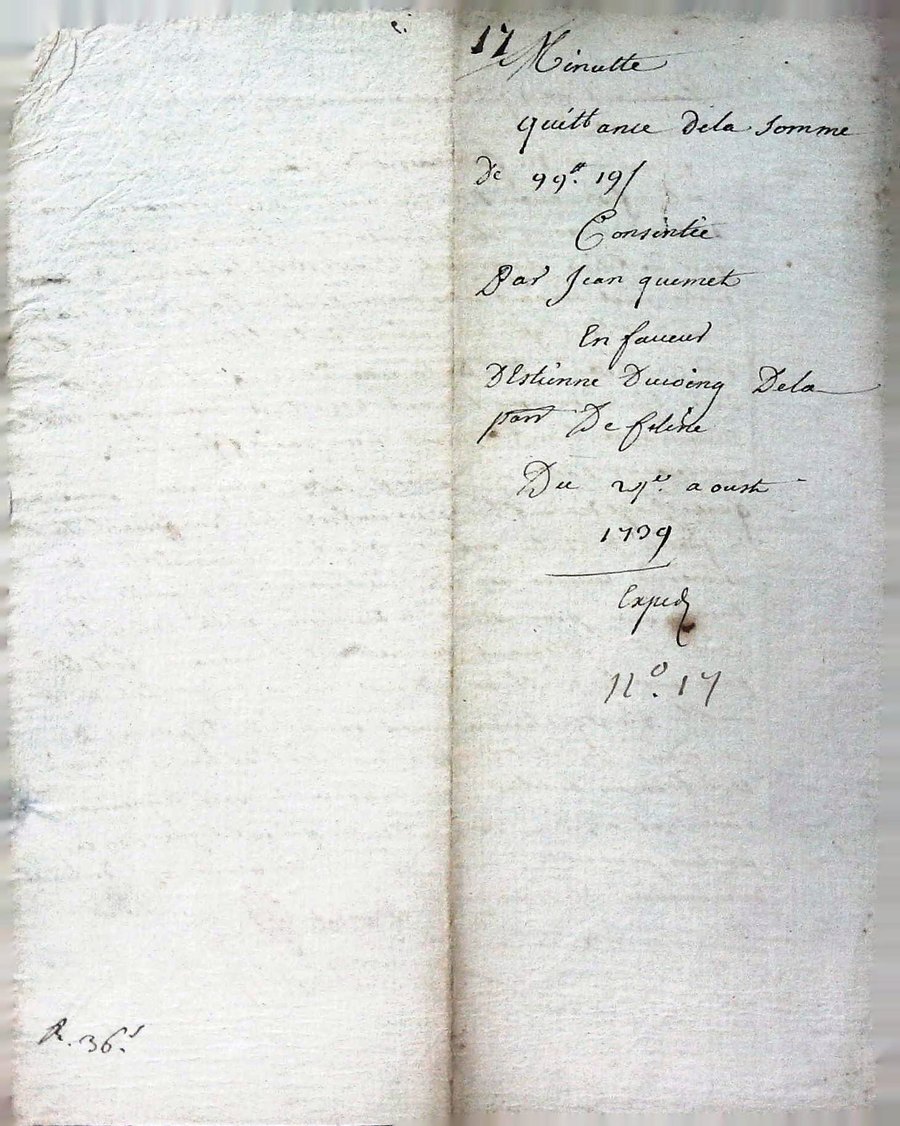 17
Minutte
quittance dela somme
de 99# 19s
Consentie
Par Jean quemet
En faveur
DEstienne Ducoing Dela
parr De feline
Du aoust
1739
Exped
No. 17
R. 36s